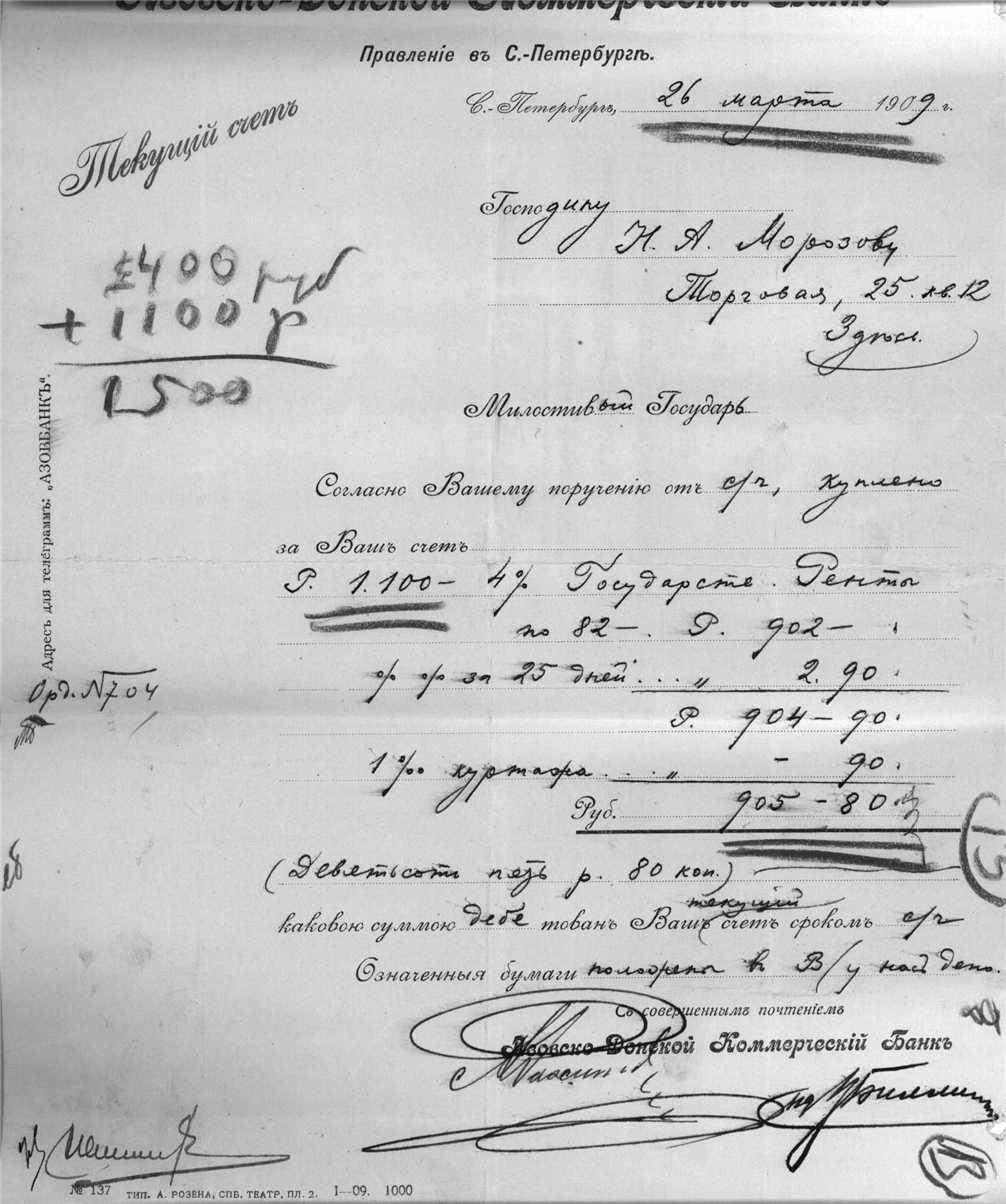 Азовско-Донской Коммерческій Банкъ
Правленіе въ С.-Петербургѣ.
С.-Петербургъ, 26 марта 1909 г.
Текущій счетъ
Господину
Н. А. Морозову
Торговая, 25. кв. 12
Здѣсь.
±400 руб
+ 1100 р
1500
Милостивый Государь
Согласно Вашему порученію отъ с/ч, куплено
за Ваш счетъ
Р. 1.100— 4% Государств. Ренты
по 82—. Р. 902—
% % за 25 дней... „ 2. 90.
Р. 904—90.
1‰ куртажа... „ — 90.
Руб. 905—80
(Девятьсотъ пять р. 80 коп.)
текущій
каковою суммою дебетован Ваш счетъ срокомъ с/ч
Означенныя бумаги положены в В/у наш депо.
Съ совершеннымъ почтеніемъ
Азовско-Донской Коммерческій Банкъ
Адресъ для телеграммъ: „АЗОВБАНКЪ“.
Орд. №704
13
13
№ 137 ТИП. А. РОЗЕНА, СПБ. ТЕАТР. ПЛ. 2. I—09. 1000